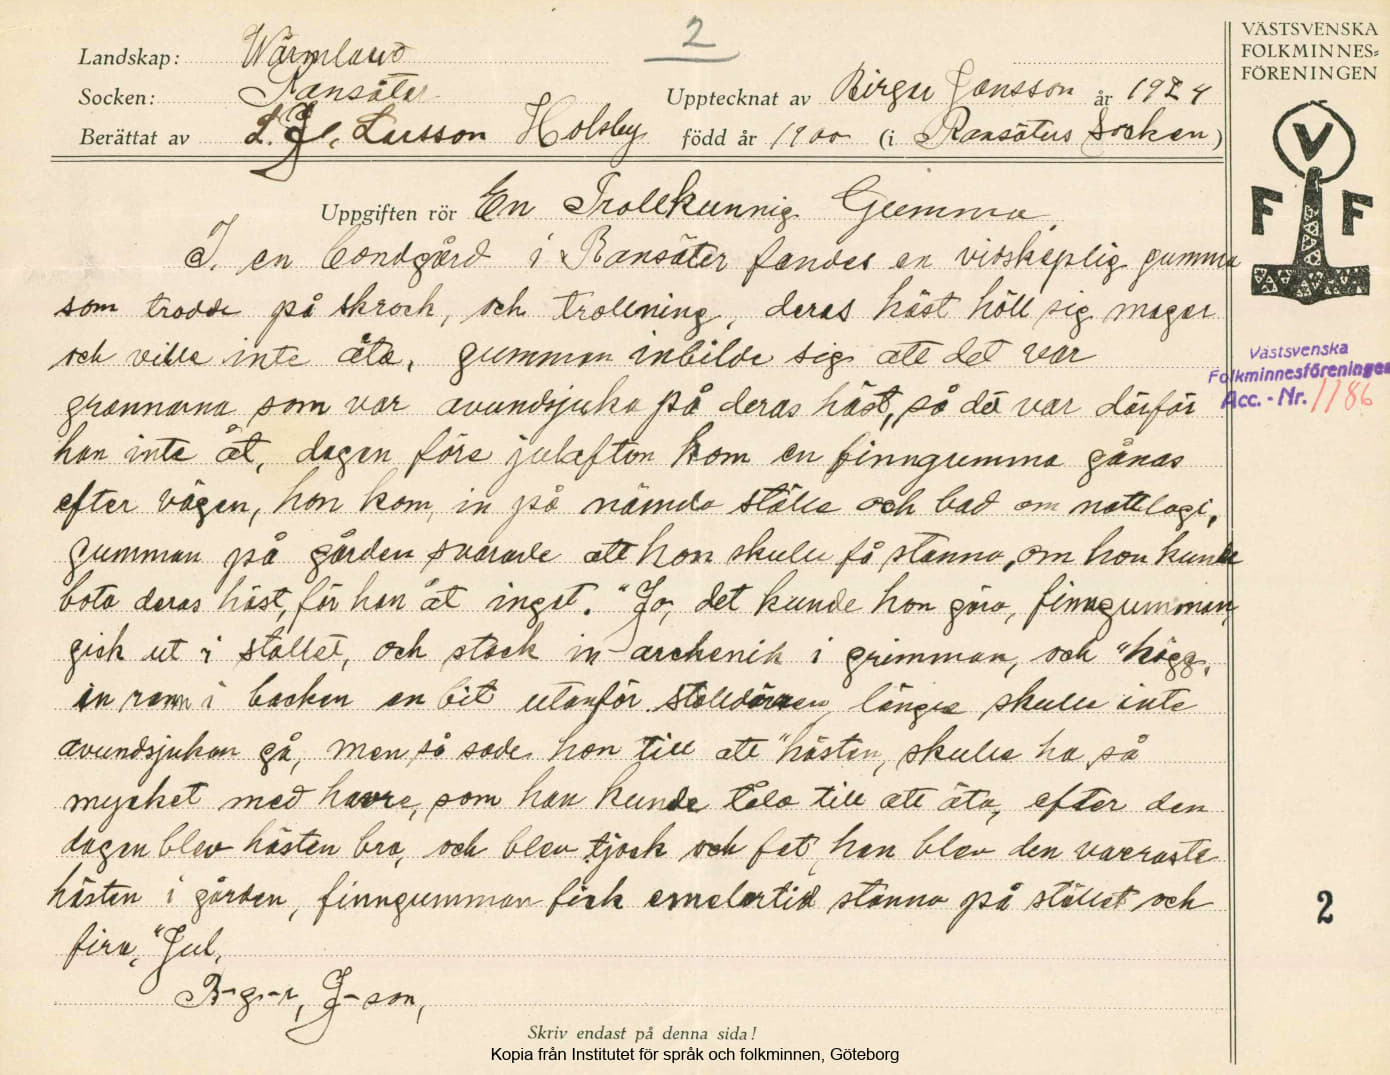 2
VÄSTSVENSKA
FOLKMINNES=
FÖRENINGEN
Landskap: Wärmland
Socken: Ransäter
Upptecknat av Birger Jansson år 1924
Berättat av L. J. Larsson Holsby
född år 1900 (i Ransäters Socken)
Uppgiften rör En Trollkunnig Gumma
V
F F
I. en bondgård i Ransäter fandes en vidskeplig gumma
som trodde på skrock, och trollning, deras häst höll sig mager
och ville inte äta, gumman inbilde sig att det var
grannarna som var avundsjuka på deras häst, så det var därför
han inte åt, dagen före julafton kom en finngumma gånas
efter vägen, hon kom, in på nämda ställe och bad om nattlogi,
gumman på gården svarade att hon skulle få stanna, om hon kunde
bota deras häst, för han åt inget. "Jo, det kunde hon göra, finngumman,
gick ut i stallet, och stack in arckenik i grimman, och "högg,
in ramn i backen en bit utanför stalldörren, längre skulle inte
avundsjukan gå, men så sade hon till att "hästen, skulle ha så
mycket med havre, som han kunde tåla till att äta, efter den
dagen blev hästen bra, och blev tjock och fet, han blev den varraste
hästen i gården, finngumman fick emelertid stanna på stället och
fira, "Jul,
B-g-r, J-son,
Västsvenska
Folkminnesföreningen
Acc. - Nr. 1786
2
Skriv endast på denna sida!
Kopia från Institutet för språk och folkminnen, Göteborg